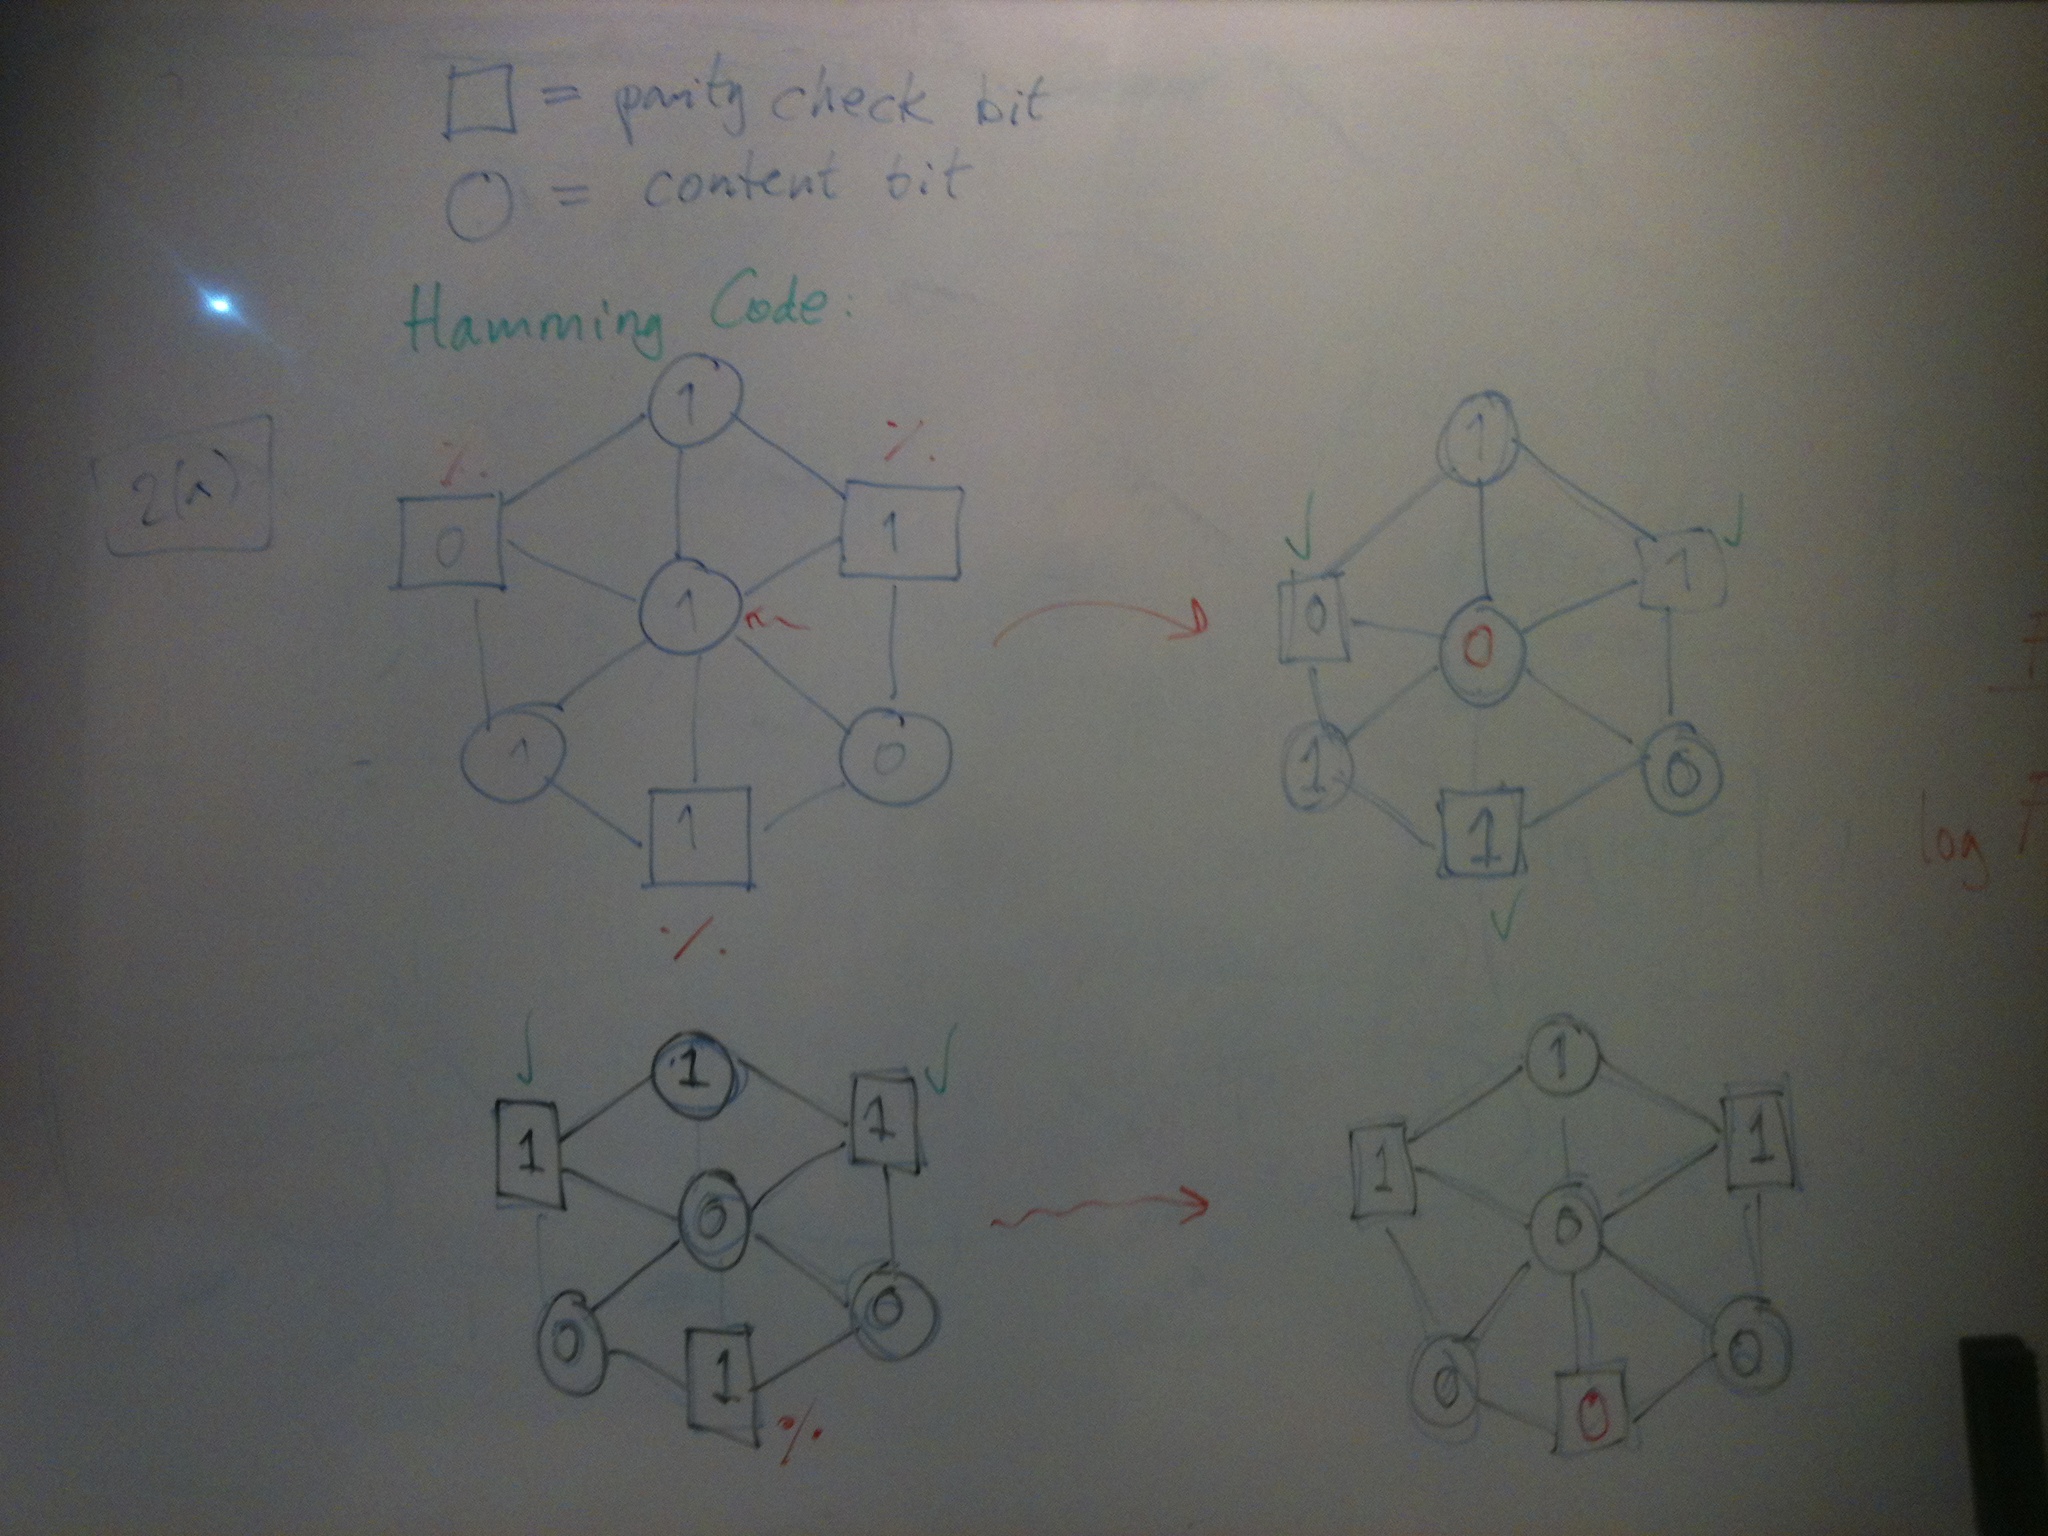 □ = parity check bit
○ = content bit
Hamming Code:
2(a)
1
0
1
1
1
0
1
1
0
1
0
1
0
1
1
1
0
0
0
1
1
1
1
0
0
0
0
log